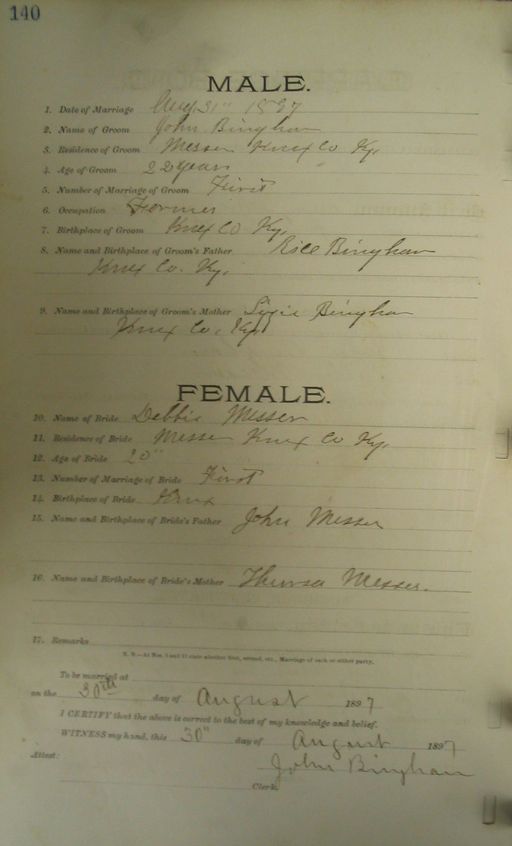 140
MALE.
1. Date of Marriage Aug 31" 1897
2. Name of Groom John Bingham
3. Residence of Groom Messer Knox Co Ky.
4. Age of Groom 22 years
5. Number of Marriage of Groom First
6. Occupation Farmer
7. Birthplace of Groom Knox Co Ky.
8. Name and Birthplace of Groom's Father Rice Bingham
Knox Co. Ky.
9. Name and Birthplace of Groom's Mother Bingham
Knox Co. Ky.
FEMALE.
10. Name of Bride Debbie Messer
11. Residence of Bride Messer Knox Co Ky.
12. Age of Bride 20"
13. Number of Marriage of Bride First
14. Birthplace of Bride Knox
15. Name and Birthplace of Bride's Father John Messer
16. Name and Birthplace of Bride's Mother Messer.
17. Remarks
N. B.—At Nos. 5 and 13 state whether first, second, etc., Marriage of each or either party.
To be married at
on the 30th day of August 1897
I CERTIFY that the above is correct to the best of my knowledge and belief.
WITNESS my hand, this 30" day of August 1897
Attest: John Bingham
Clerk.